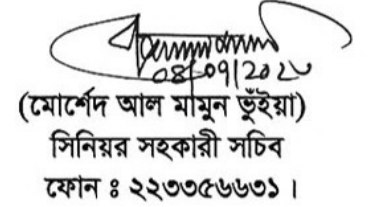 08/09/20২৫
(মোর্শেদ আল মামুন ভূঁইয়া)
সিনিয়র সহকারী সচিব
ফোন ঃ ২২৩৩৫৬৬৩১ ।